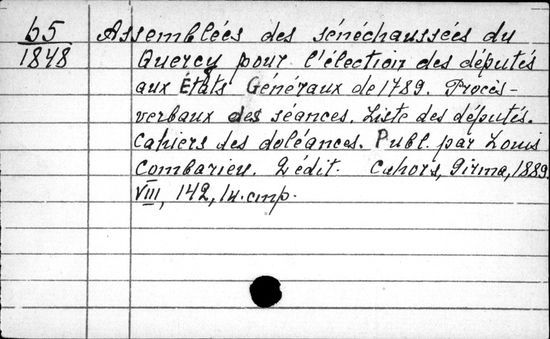 65
1848
Assemblées des sénéchaussées du
Quercy pour l'élection des députés
aux États Généraux de 1789. Procès-
verbaux des séances. Liste des députés.
Cahiers des doléances. Publ. par Louis
Combarieu. 2 édit. Cahors, Girma, 1889.
VIII, 142, 1 н. стр.